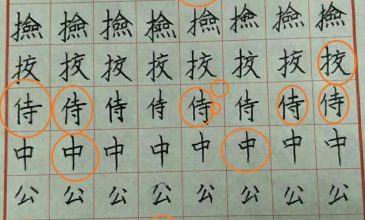 撿撿撿撿撿撿撿撿
侍侍侍侍侍侍侍侍
中中中中中中中中
公公公公公公公公